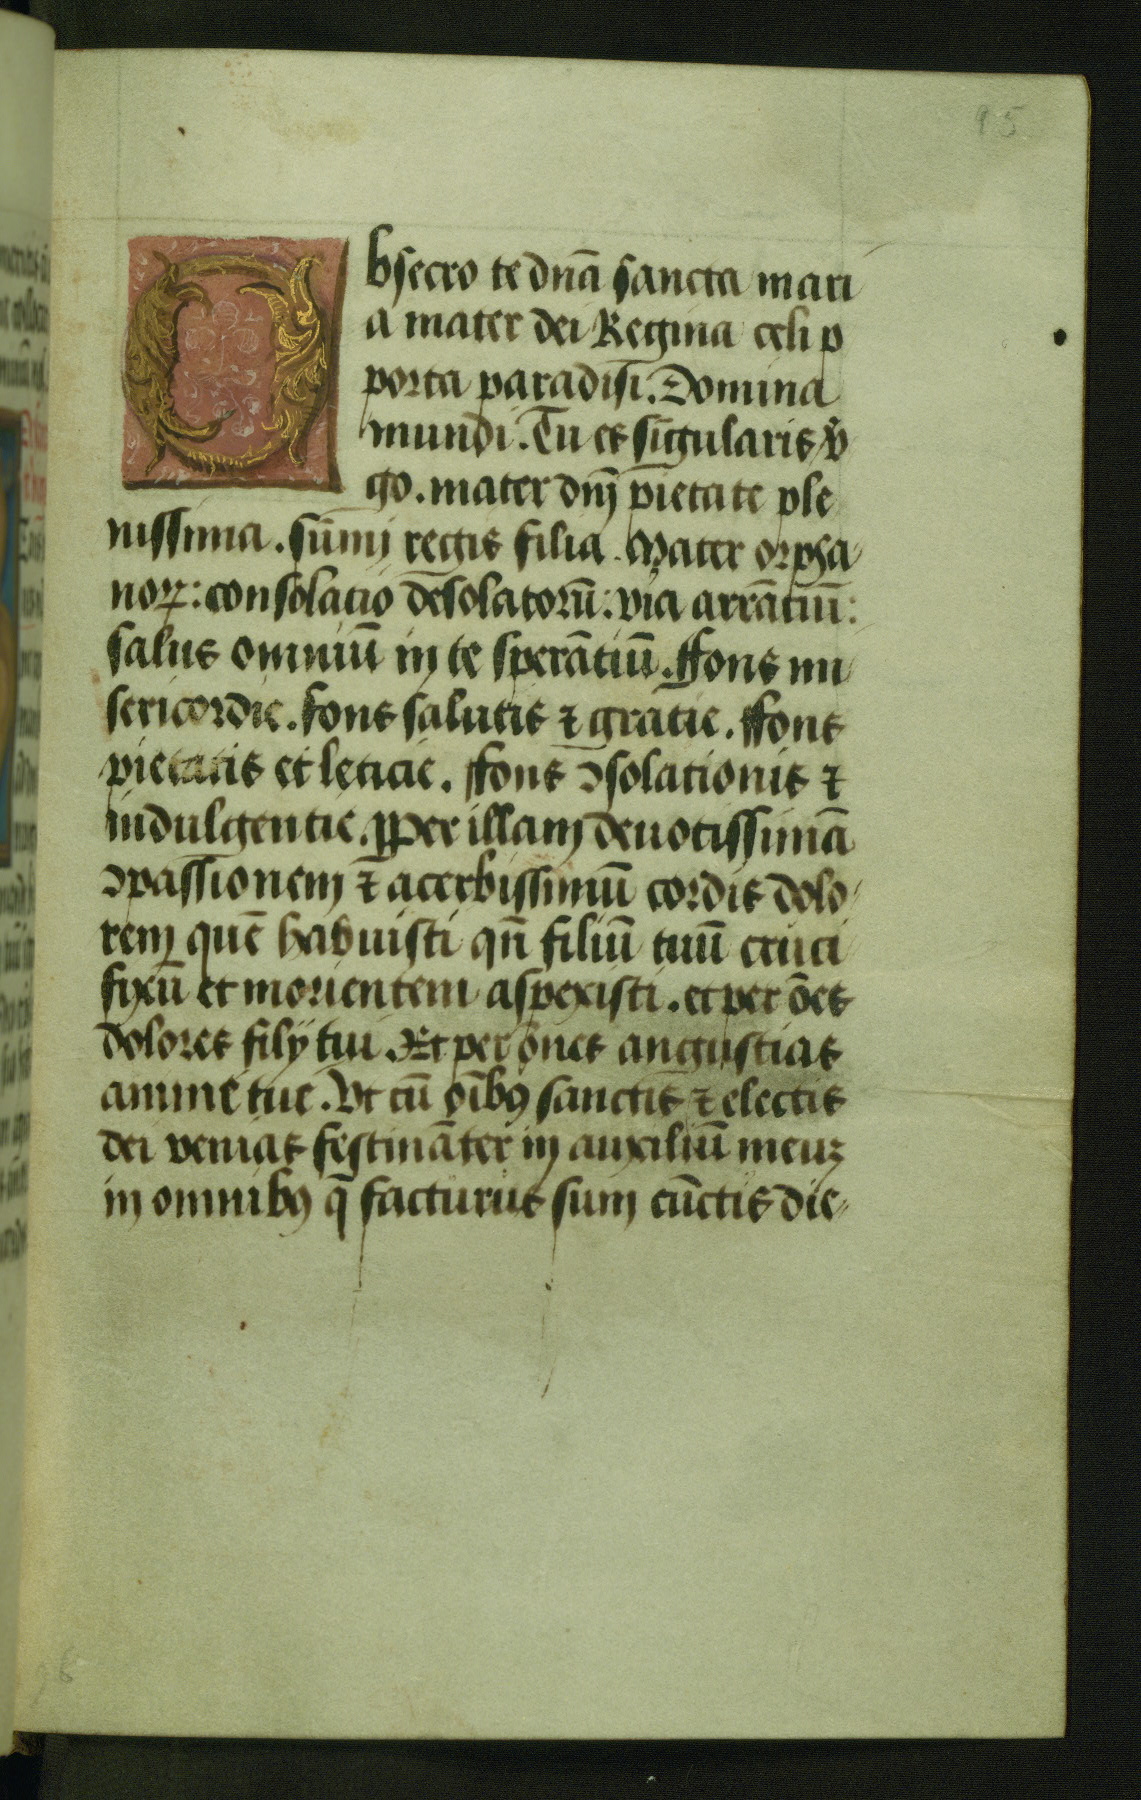 95
Obsecro te dnā sancta mari
a mater dei Regina celi p
porta paradisi. Domina
mundi. Tu es sīgularis v̄
go. mater dnj pietate ple
nissima. sūmj regis filia. Mater orpha
noꝝ: consolacio desolatorū: via arrātiū:
salus omniū in te sperātiū. ffons mi
sericordie. fons salutis ⁊ gratie. ffons
pietatis et leticie. ffons ↄsolationis ⁊
indulgentie. pPer illam deuotissimā
ↄpassionem ⁊ acerbissimū cordis dolo
rem quē habuisti qn̄ filiū tuū cruci
fixū et morientem aspexisti. et per ōes
dolores filij tui. Et per ōnes angustias
anime tue. Vt cū oībꝰ sanctis ⁊ electis
dei venias festināter in auxiliū meuꝫ
in omnibꝰ q̄ facturus sum cūctis die